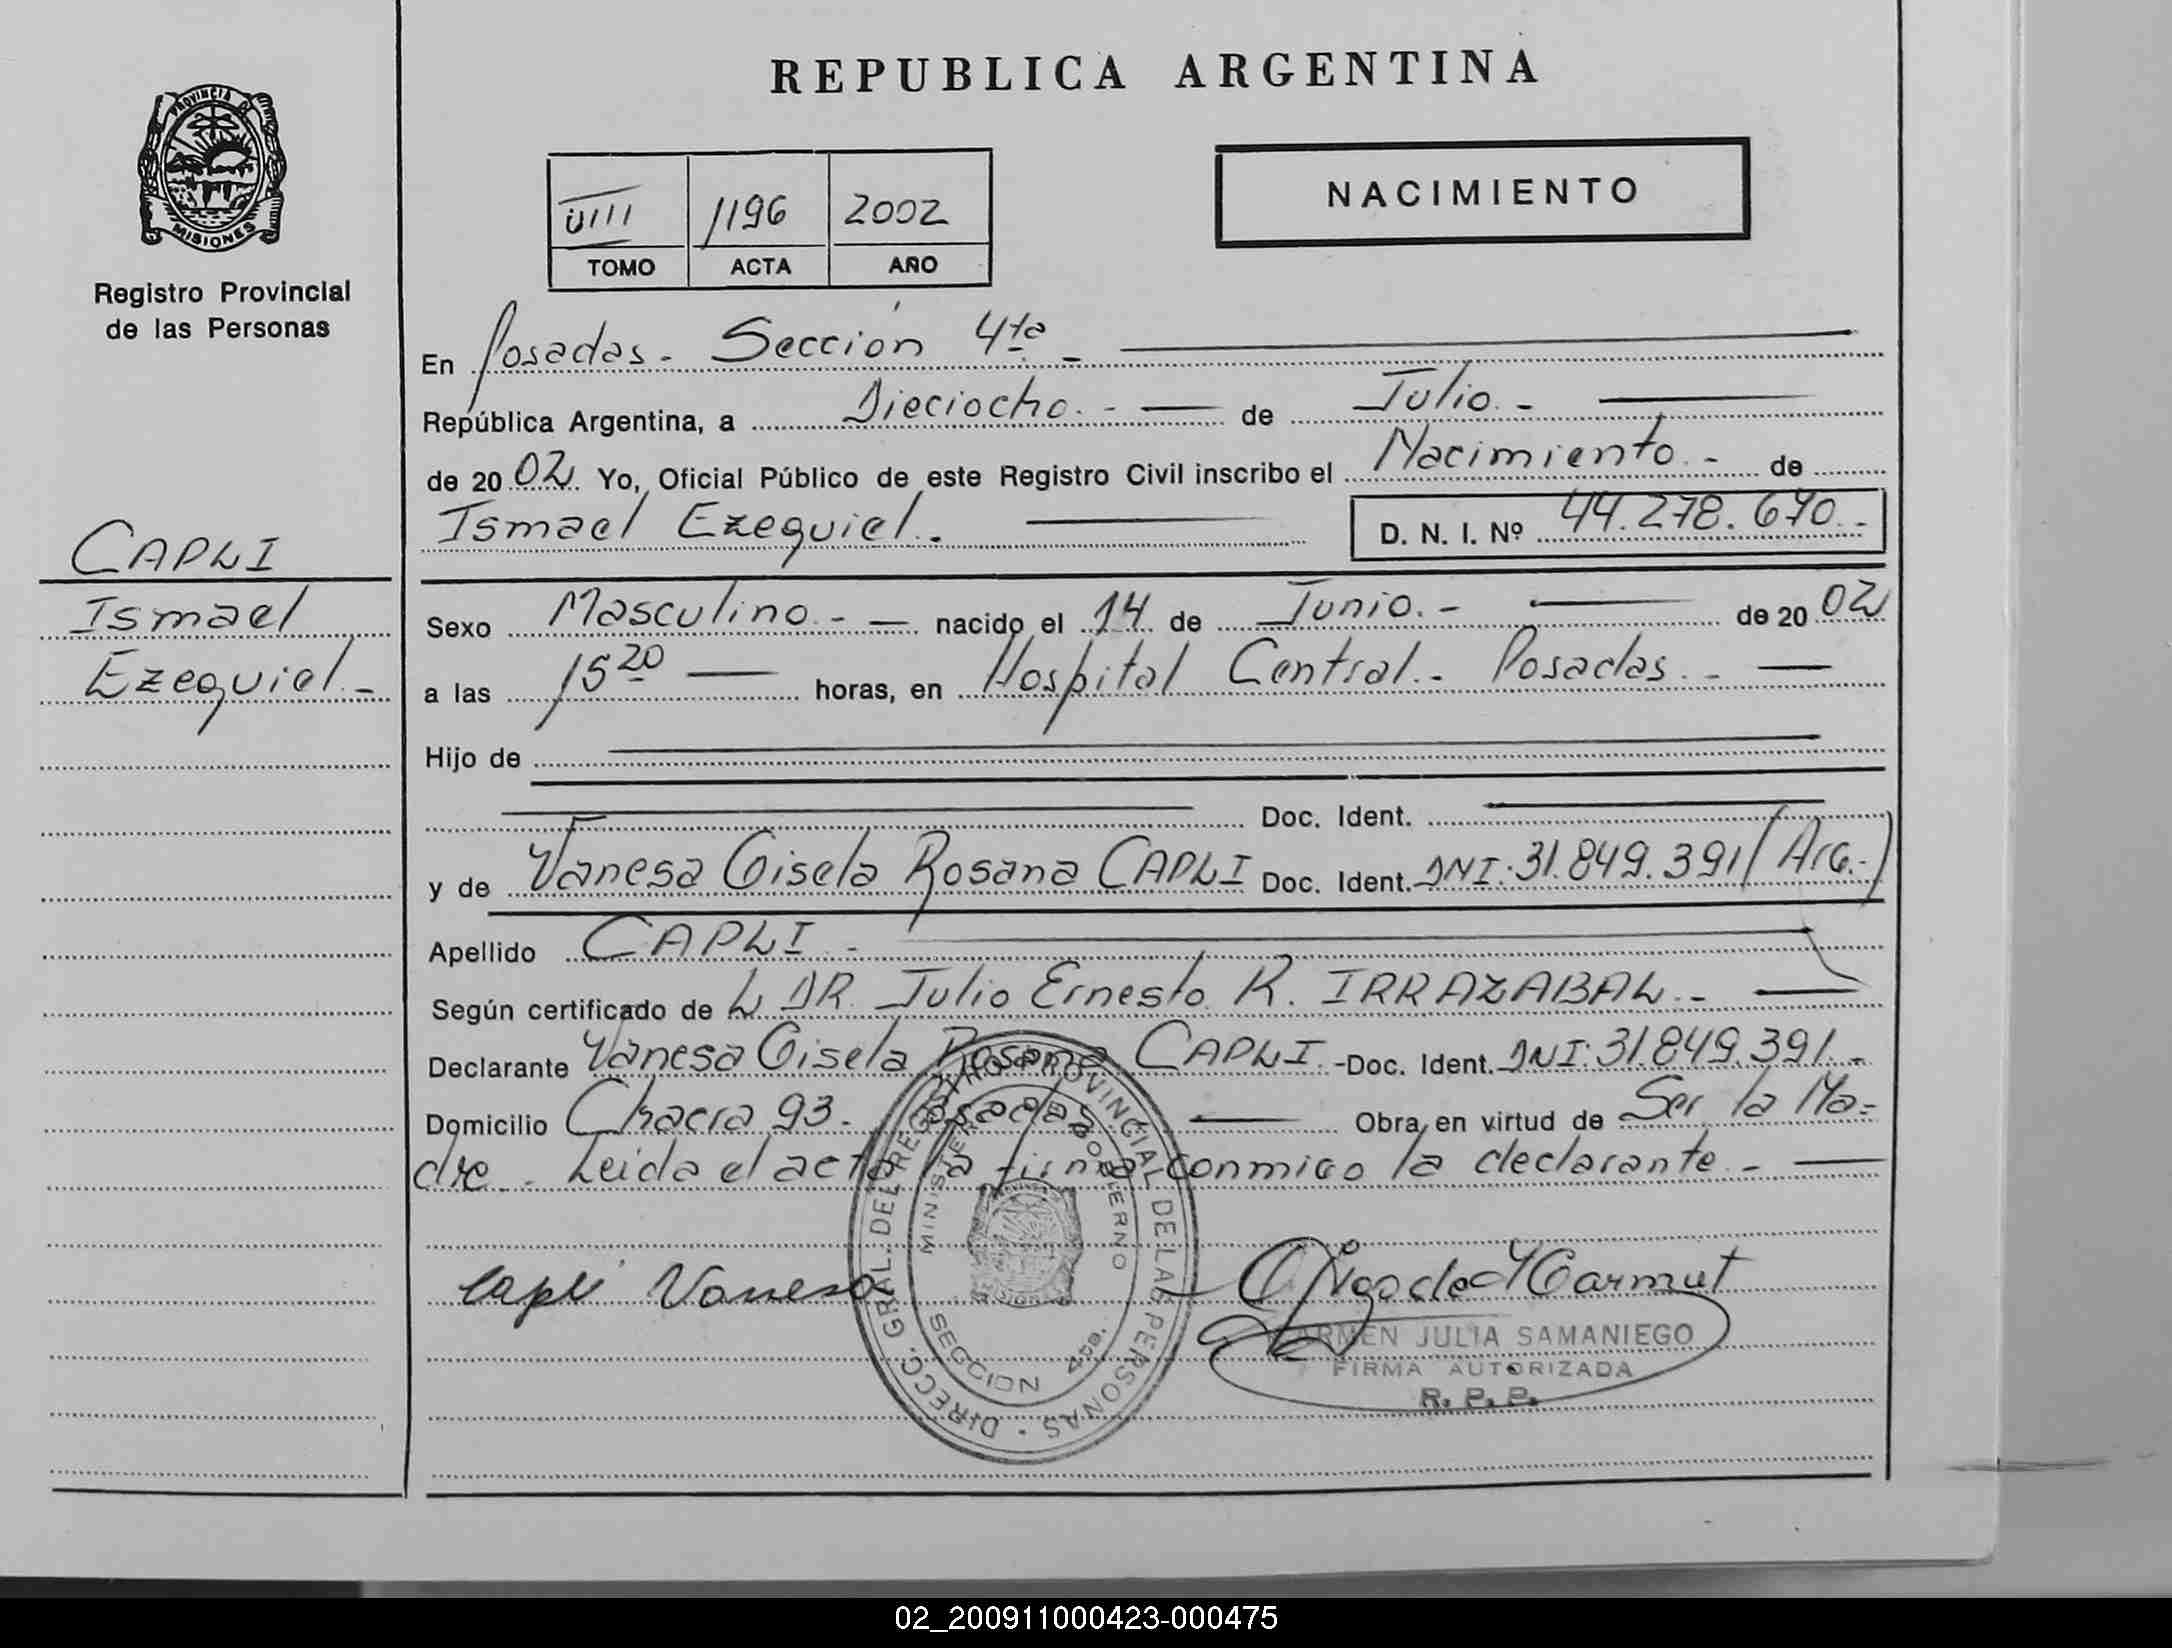 REPUBLICA ARGENTINA
PROVINCIA DE
MISIONES
Registro Provincial
de las Personas
VIII 1196 2002
TOMO ACTA AÑO
NACIMIENTO
En Posadas.- Sección 4ta.-
República Argentina, a Dieciocho.- de Julio.-
de 2002 Yo, Oficial Público de este Registro Civil inscribo el Nacimiento.- de
Ismael Ezequiel.- D. N. I. Nº 44.278.670.-
CAPLI
Ismael
Ezequiel.-
Sexo Masculino.- nacido el 14 de Junio.- de 2002
a las 15 20 horas, en Hospital Central.- Posadas.-
Hijo de
Doc. Ident.
y de Vanesa Gisela Rosana CAPLI Doc. Ident. DNI: 31.849.391 (Arg.-)
Apellido CAPLI.-
Según certificado de L DR. Julio Ernesto R. IRRAZABAL.-
Declarante Vanesa Gisela Rosana CAPLI.- Doc. Ident. DNI: 31.849.391.-
Domicilio Chacra 93.- Posadas Obra en virtud de Ser la Ma-
dre.- Leida el acta la firma conmigo la declarante.-
Capli Vanesa
DIRECC. GRAL. DEL REGISTRO PROVINCIAL DE LAS PERSONAS
MINISTERIO DE GOBIERNO
SECCION 4ta.
CARMEN JULIA SAMANIEGO
FIRMA AUTORIZADA
R. P. P.
02_200911000423-000475